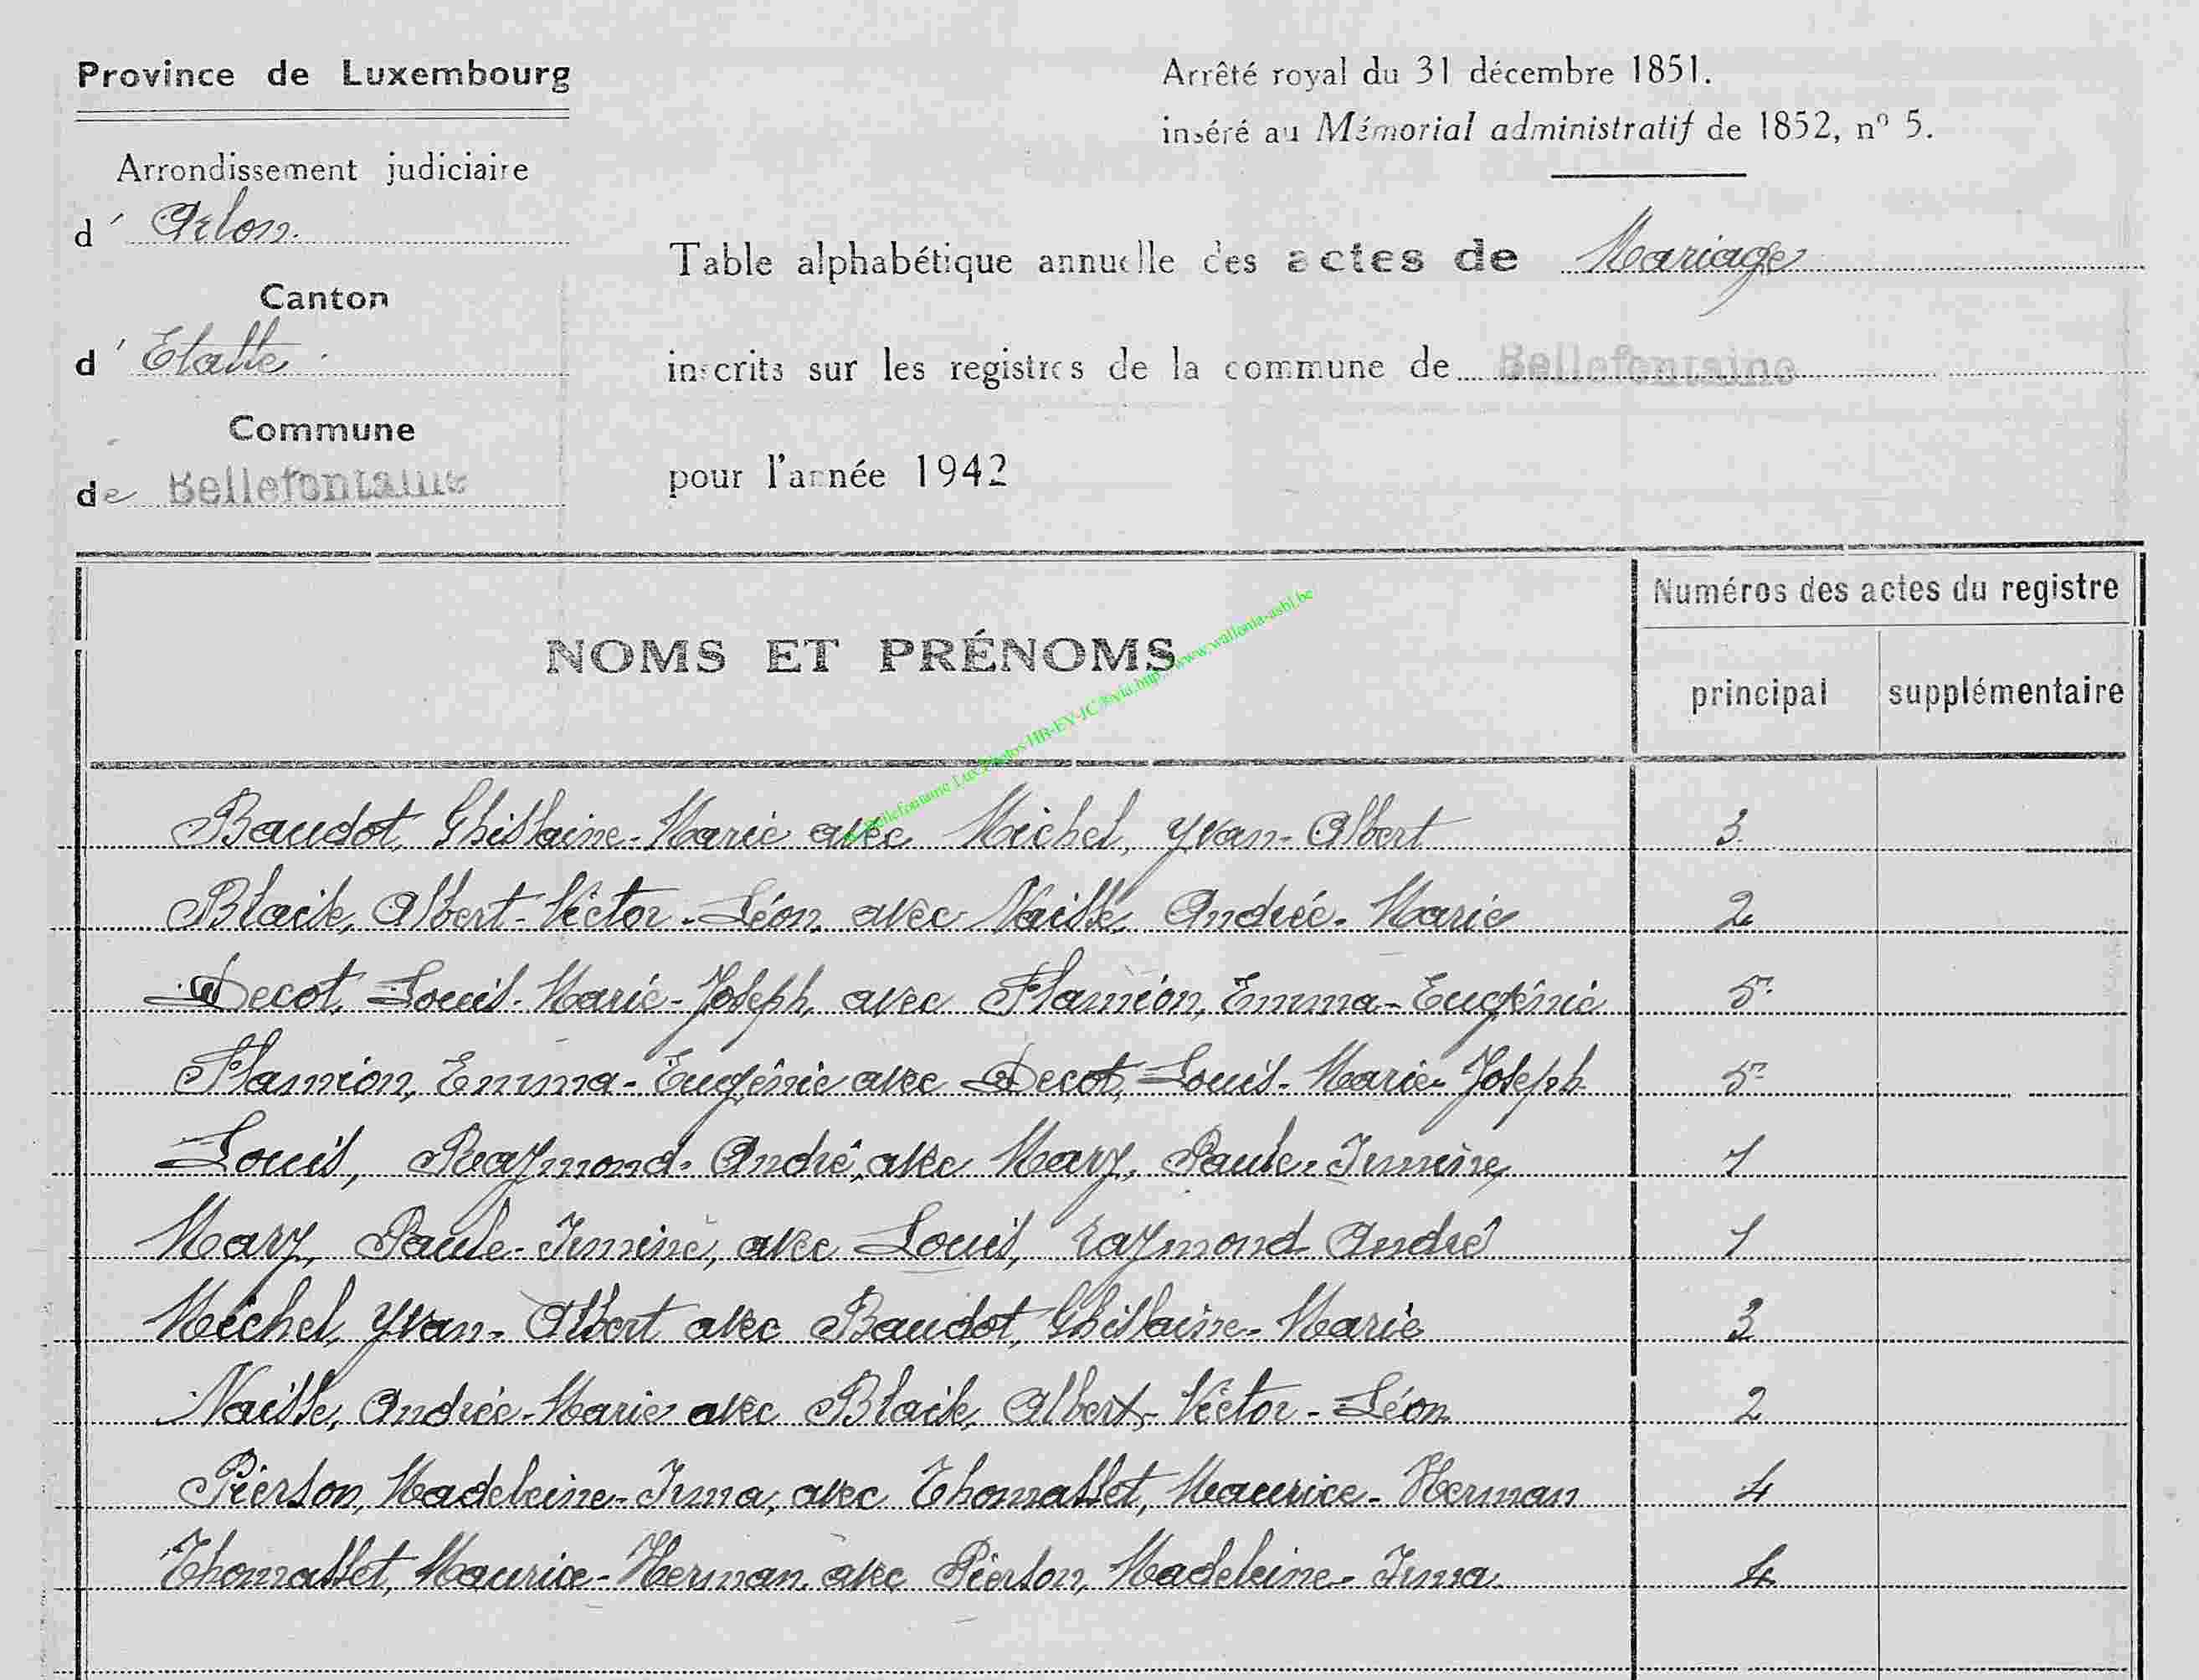 Province de Luxembourg
Arrêté royal du 31 décembre 1851.
inséré au Mémorial administratif de 1852, nº 5.
Arrondissement judiciaire
d' Arlon.
Table alphabétique annuelle des actes de Mariage
Canton
d' Etalle
inscrits sur les registres de la commune de Bellefontaine
Commune
de Bellefontaine
pour l'année 1942
Numéros des actes du registre
NOMS ET PRÉNOMS
principal supplémentaire
Baudot, Ghislaine-Marie avec Michel, Yvan-Albert 3
Blaise, Albert-Victor-Léon, avec Naisse, Andrée-Marie 2
Decot, Louis-Marie-Joseph, avec Flamion, Emma-Eugénie 5
Flamion, Emma-Eugénie avec Decot, Louis-Marie-Joseph 5
Louis, Raymond-André, avec Mary, Paule- 1
Mary, Paule- avec Louis, Raymond André 1
Michel, Yvan-Albert avec Baudot, Ghislaine-Marie 3
Naisse, Andrée-Marie avec Blaise, Albert-Victor-Léon 2
Pierson, Madeleine-Irma, avec Thomasset, Maurice-Herman 4
Thomasset, Maurice-Herman, avec Pierson, Madeleine-Irma. 4